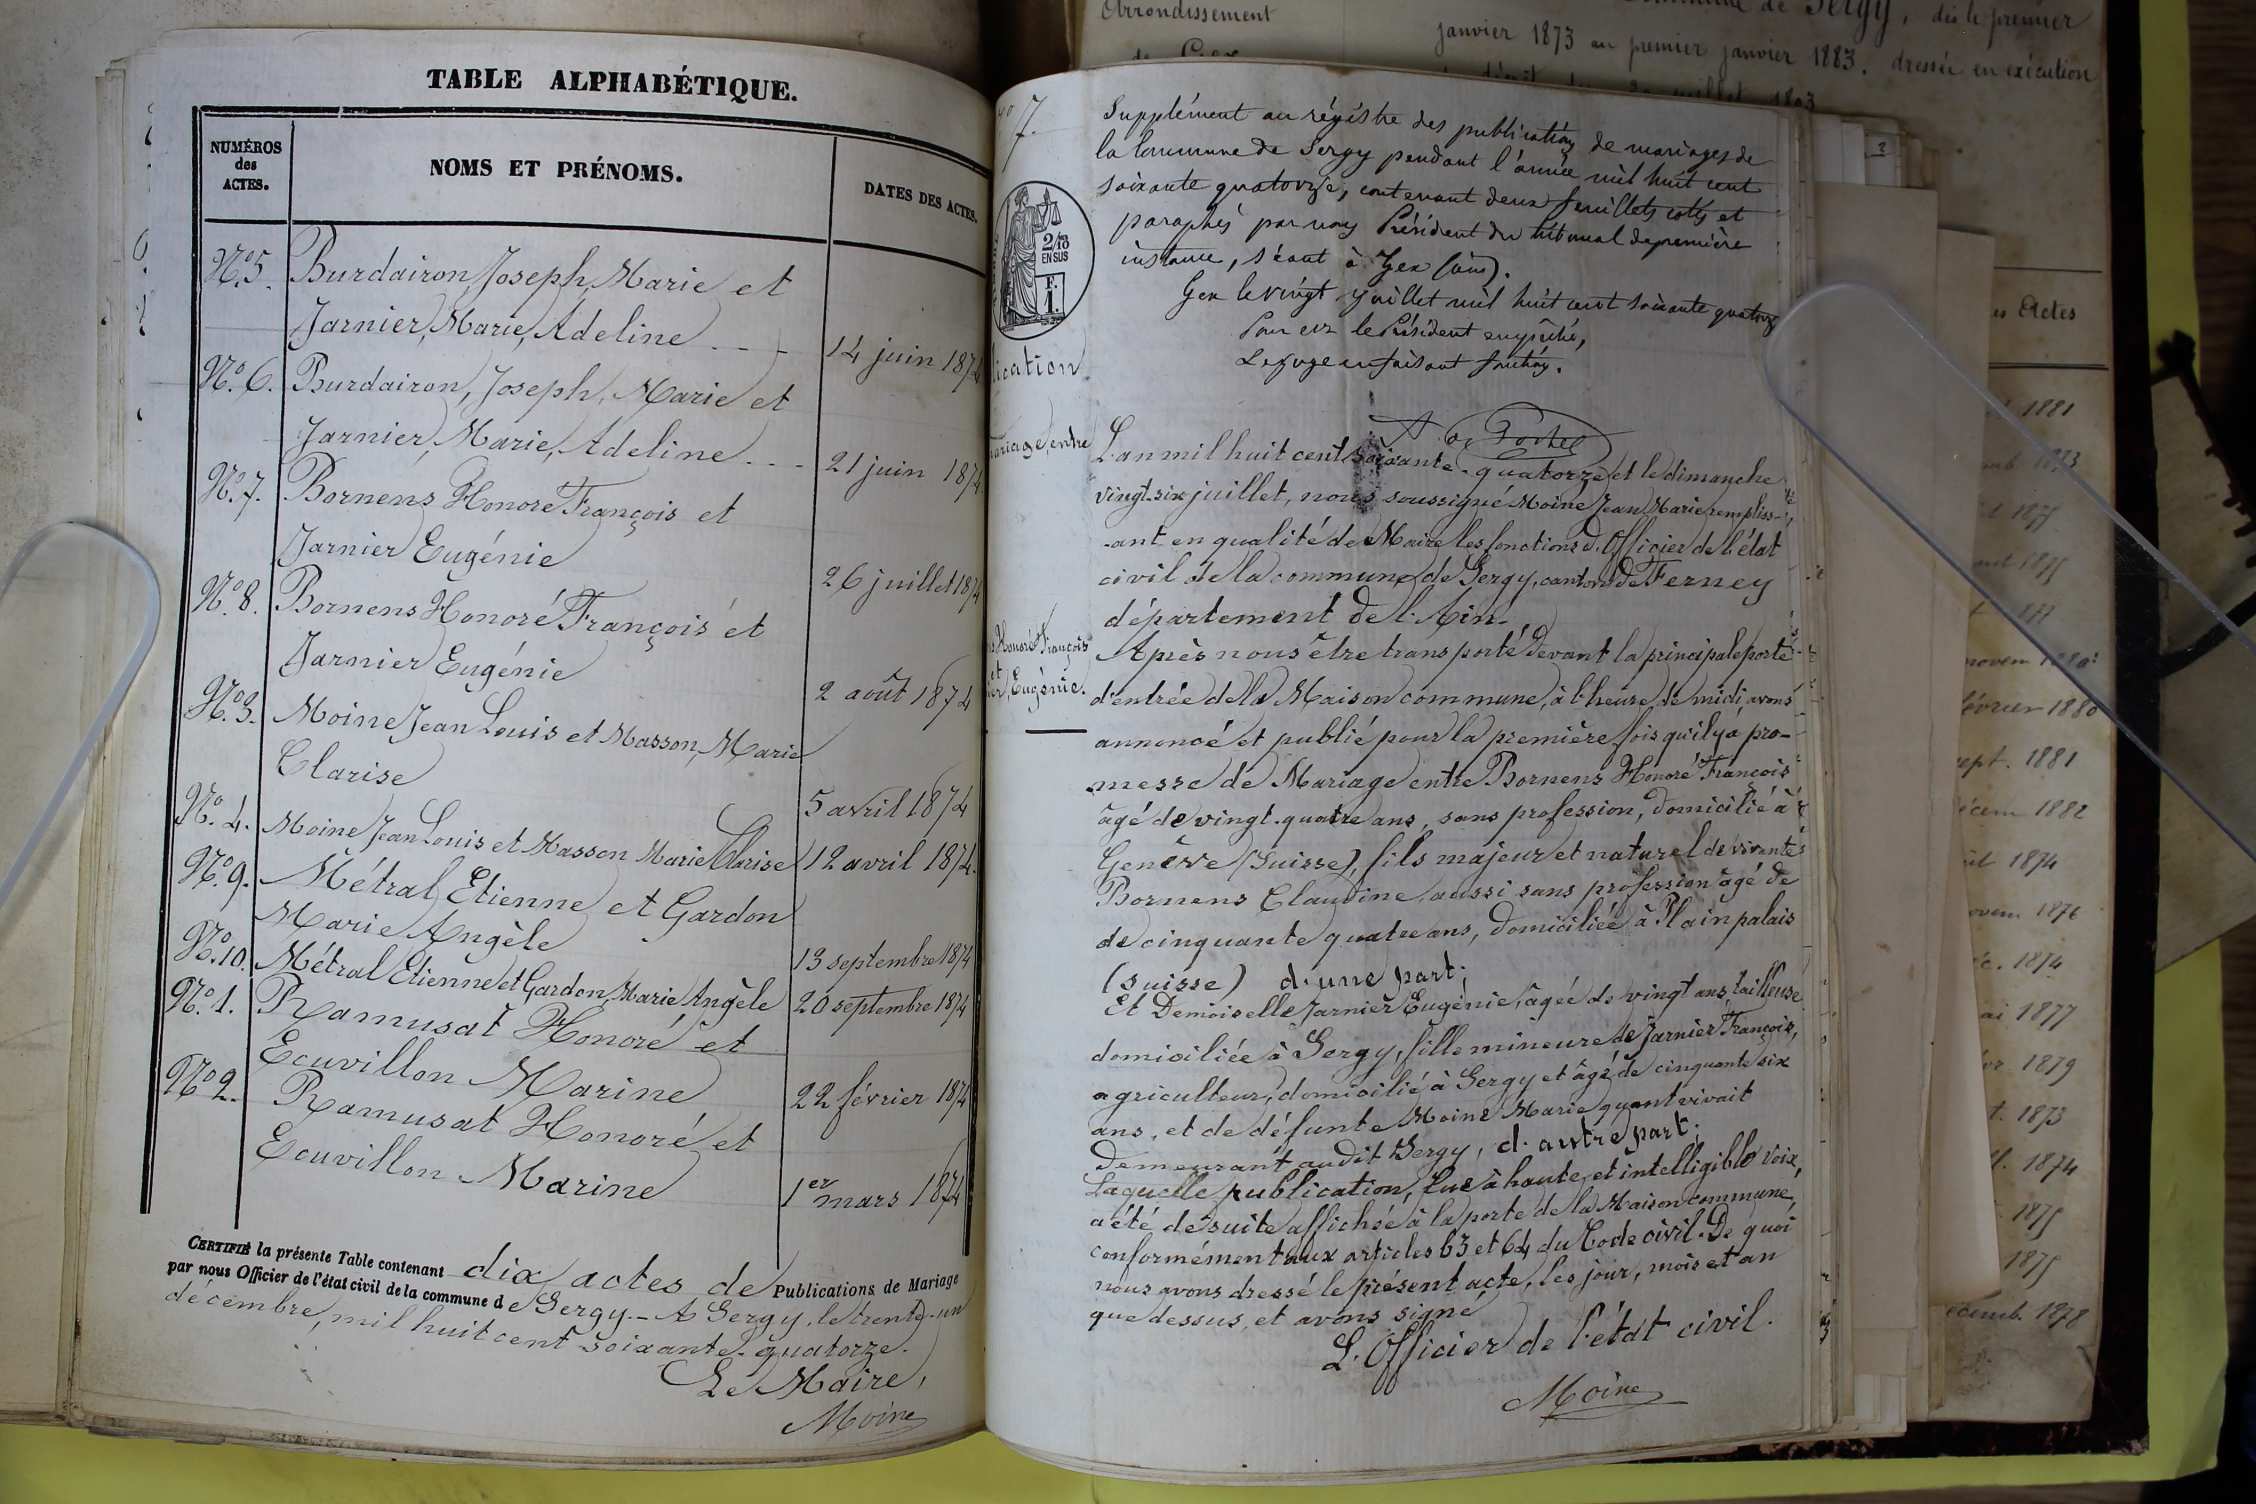 TABLE ALPHABÉTIQUE.
NUMÉROS
des
ACTES.
NOMS ET PRÉNOMS.
DATES DES ACTES.
N.º5. Burdairon, Joseph, Marie et
Jarnier, Marie, Adeline - - - 14 juin 1874
N.º6. Burdairon, Joseph, Marie et
Jarnier, Marie, Adeline - - - 21 juin 1874
N.º7. Bornens Honoré François et
Jarnier Eugénie 26 juillet 1874
N.º8. Bornens Honoré François et
Jarnier Eugénie 2 août 1874
N.º3. Moine Jean Louis et Masson, Marie
Clarise 5 avril 1874
N.º4. Moine Jean Louis et Masson Marie Clarise 12 avril 1874.
N.º9. Métral Etienne et Gardon
Marie Angèle 13 septembre 1874
N.º10. Métral Etienne et Gardon, Marie, Angèle 20 septembre 1874
N.º1. Ramusat Honoré et
Ecuvillon Marine 22 février 1874
N.º2. Ramusat Honoré et
Ecuvillon Marine 1er mars 1874
CERTIFIÉ la présente Table contenant dix actes de Publications de Mariage
par nous Officier de l'état civil de la commune de Sergy. - A Sergy, le trente-un
décembre, mil huit cent soixante-quatorze.
Le Maire,
Moine
7.
2/10
EN SUS
F.
1.
lication
ariage, entre
Honoré François
et
Eugénie.
Supplément au régistre des publications de mariages de
la Commune de Sergy pendant l'année mil huit cent
soixante quatorze, contenant deux feuillets cotés et
paraphés par nous Président du tribunal de première
instance, séant à Gex (ain).
Gex le vingt juillet mil huit cent soixante quatorze
Pour le Président empêché,
Le juge en faisant fonction.
L'an mil huit cent soixante-quatorze et le dimanche
vingt-six juillet, nous soussigné Moine Jean Marie rempliss-
-ant en qualité de Maire les fonctions d'Officier de l'état
civil de la commune de Sergy, canton de Ferney
département de l'Ain.
Après nous être transporté devant la principale porte
d'entrée de la Maison commune, à l'heure de midi, avons
annoncé et publié pour la première fois qu'il y a pro-
messe de Mariage entre Bornens Honoré François
âgé de vingt-quatre ans, sans profession, domicilié à
Genève (Suisse), fils majeur et naturel de vivante
Bornens Claudine, aussi sans profession âgé de
de cinquante quatre ans, domiciliée à Plainpalais
(Suisse) d'une part;
Et Demoiselle Jarnier Eugénie, âgée de vingt ans, tailleuse
domiciliée à Sergy, fille mineure de Jarnier François,
agriculteur, domicilié à Sergy et âgé de cinquante six
ans, et de défunte Moine Marie quant vivait
demeurant audit Sergy, d'autre part;
Laquelle publication, lue à haute et intelligible voix,
a été de suite affichée à la porte de la Maison commune,
conformément aux articles 63 et 64 du Code civil. De quoi
nous avons dressé le présent acte, les jour, mois et an
que dessus, et avons signé
L'Officier de l'état civil.
Moine
Arrondissement
de Gex
Commune de Sergy, dès le premier
janvier 1873 au premier janvier 1883. dressée en exécution
Actes
1881
1873
1875
1875
novem 1880
février 1880
sept. 1881
décem 1882
1874
novem 1876
1874
1877
1879
1873
1874
1875
1875
décemb. 1878